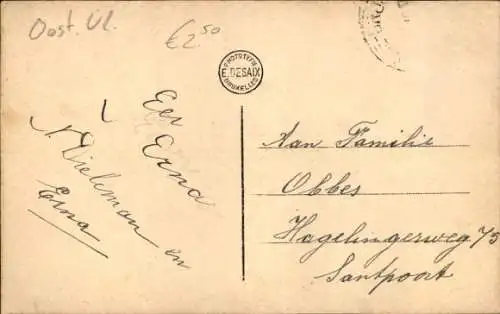 Oost. Vl.
€2.50
PHOTOTYPIE
E. DESAIX
BRUXELLES
Eer
Erna
N. Dieleman en
Erna
Aan Familie
Obbes
Hagelingerweg 75
Santpoort